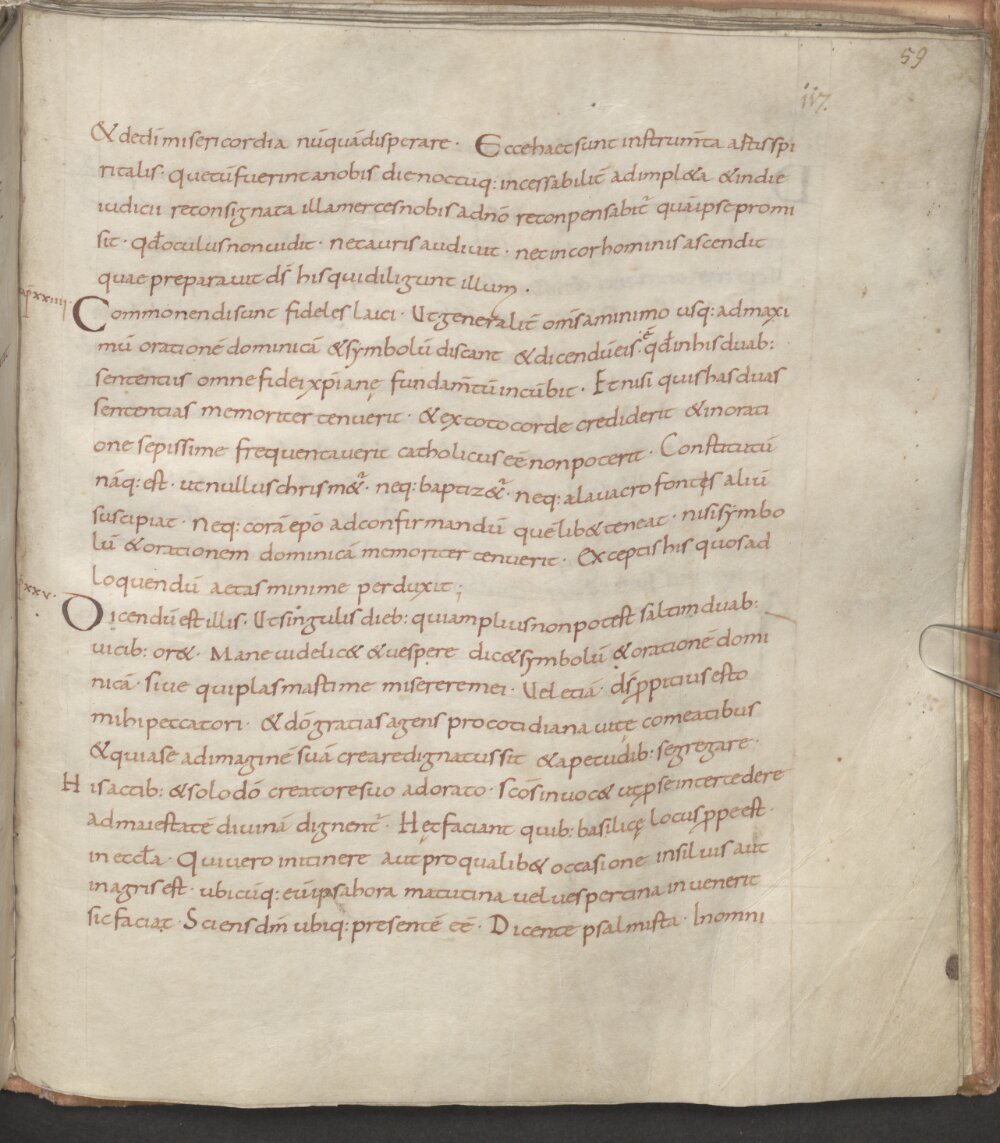 59
117.
& dedī misericordia nūquā disperare · Ecce haec sunt instrum̄ta artis spi
ritalis · que cū fuerint a nobis die noctuq: incessabilit̄ adimpl&a & in die
iudicii reconsignata illa merces nobis a dn̄o reconpensabit̄ quā ipse promi
sit · qđ oculus non vidit · nec auris audivit · nec in cor hominis ascendit
quae preparavit dš his qui diligunt illum .
ap̄ xxiiii · Commonendi sunt fideles laici · Ut generalit̄ om̄s a minimo usq: ad maxi
mū orationē dominicā & symbolū discant & dicendū eis · qđ ē in his duab:
sententiis omne fidei xp̄ianę fundam̄tū incūbit · Et nisi quis has duas
sententias memoriter tenuerit · & ex toto corde crediderit & in orati
one sepissime frequentaverit catholicus eē non poterit · Constitutū
nāq: est · ut nullus chrism&ur · neq: baptiz&ur · neq: a lavacro fontęs aliū
suscipiat · Neq: corā ep̄o ad confirmandū quēlib& teneat · nisi symbo
lū & orationem dominicā memoriter tenuerit · Exceptis his quos ad
loquendū aetas minime perduxit ;
xxv · Dicendū est illis · Ut singulis dieb: qui amplius non potest saltim duab:
vicib: or& · Mane videlic& & vespere dic& symbolū & orationē domi
nicā · sive qui plasmasti me miserere mei · Vel etiā · dš ꝓpitius esto
mihi peccatori · & dō gratias agens pro cotidiana vitę comeatibus
& quia se ad imaginē suā creare dignatus sit & a pecudib: segregare ·
His actib: & solo dō creatore suo adorato · sc̄os invoc& ut ꝓ se intercedere
ad maiestatē divinā dignent̄ · Hęc faciant quib: basilicę locus ꝓpe est ·
in eccl̄a · Qui vero in itinere aut pro qualib& occasione in silvis aut
in agris est · ubicūq: eū ipsa hora matutina vel vespertina invenerit
sic faciat · Sciens dm̄ ubiq: presentē eē · Dicente psalmista · In omni